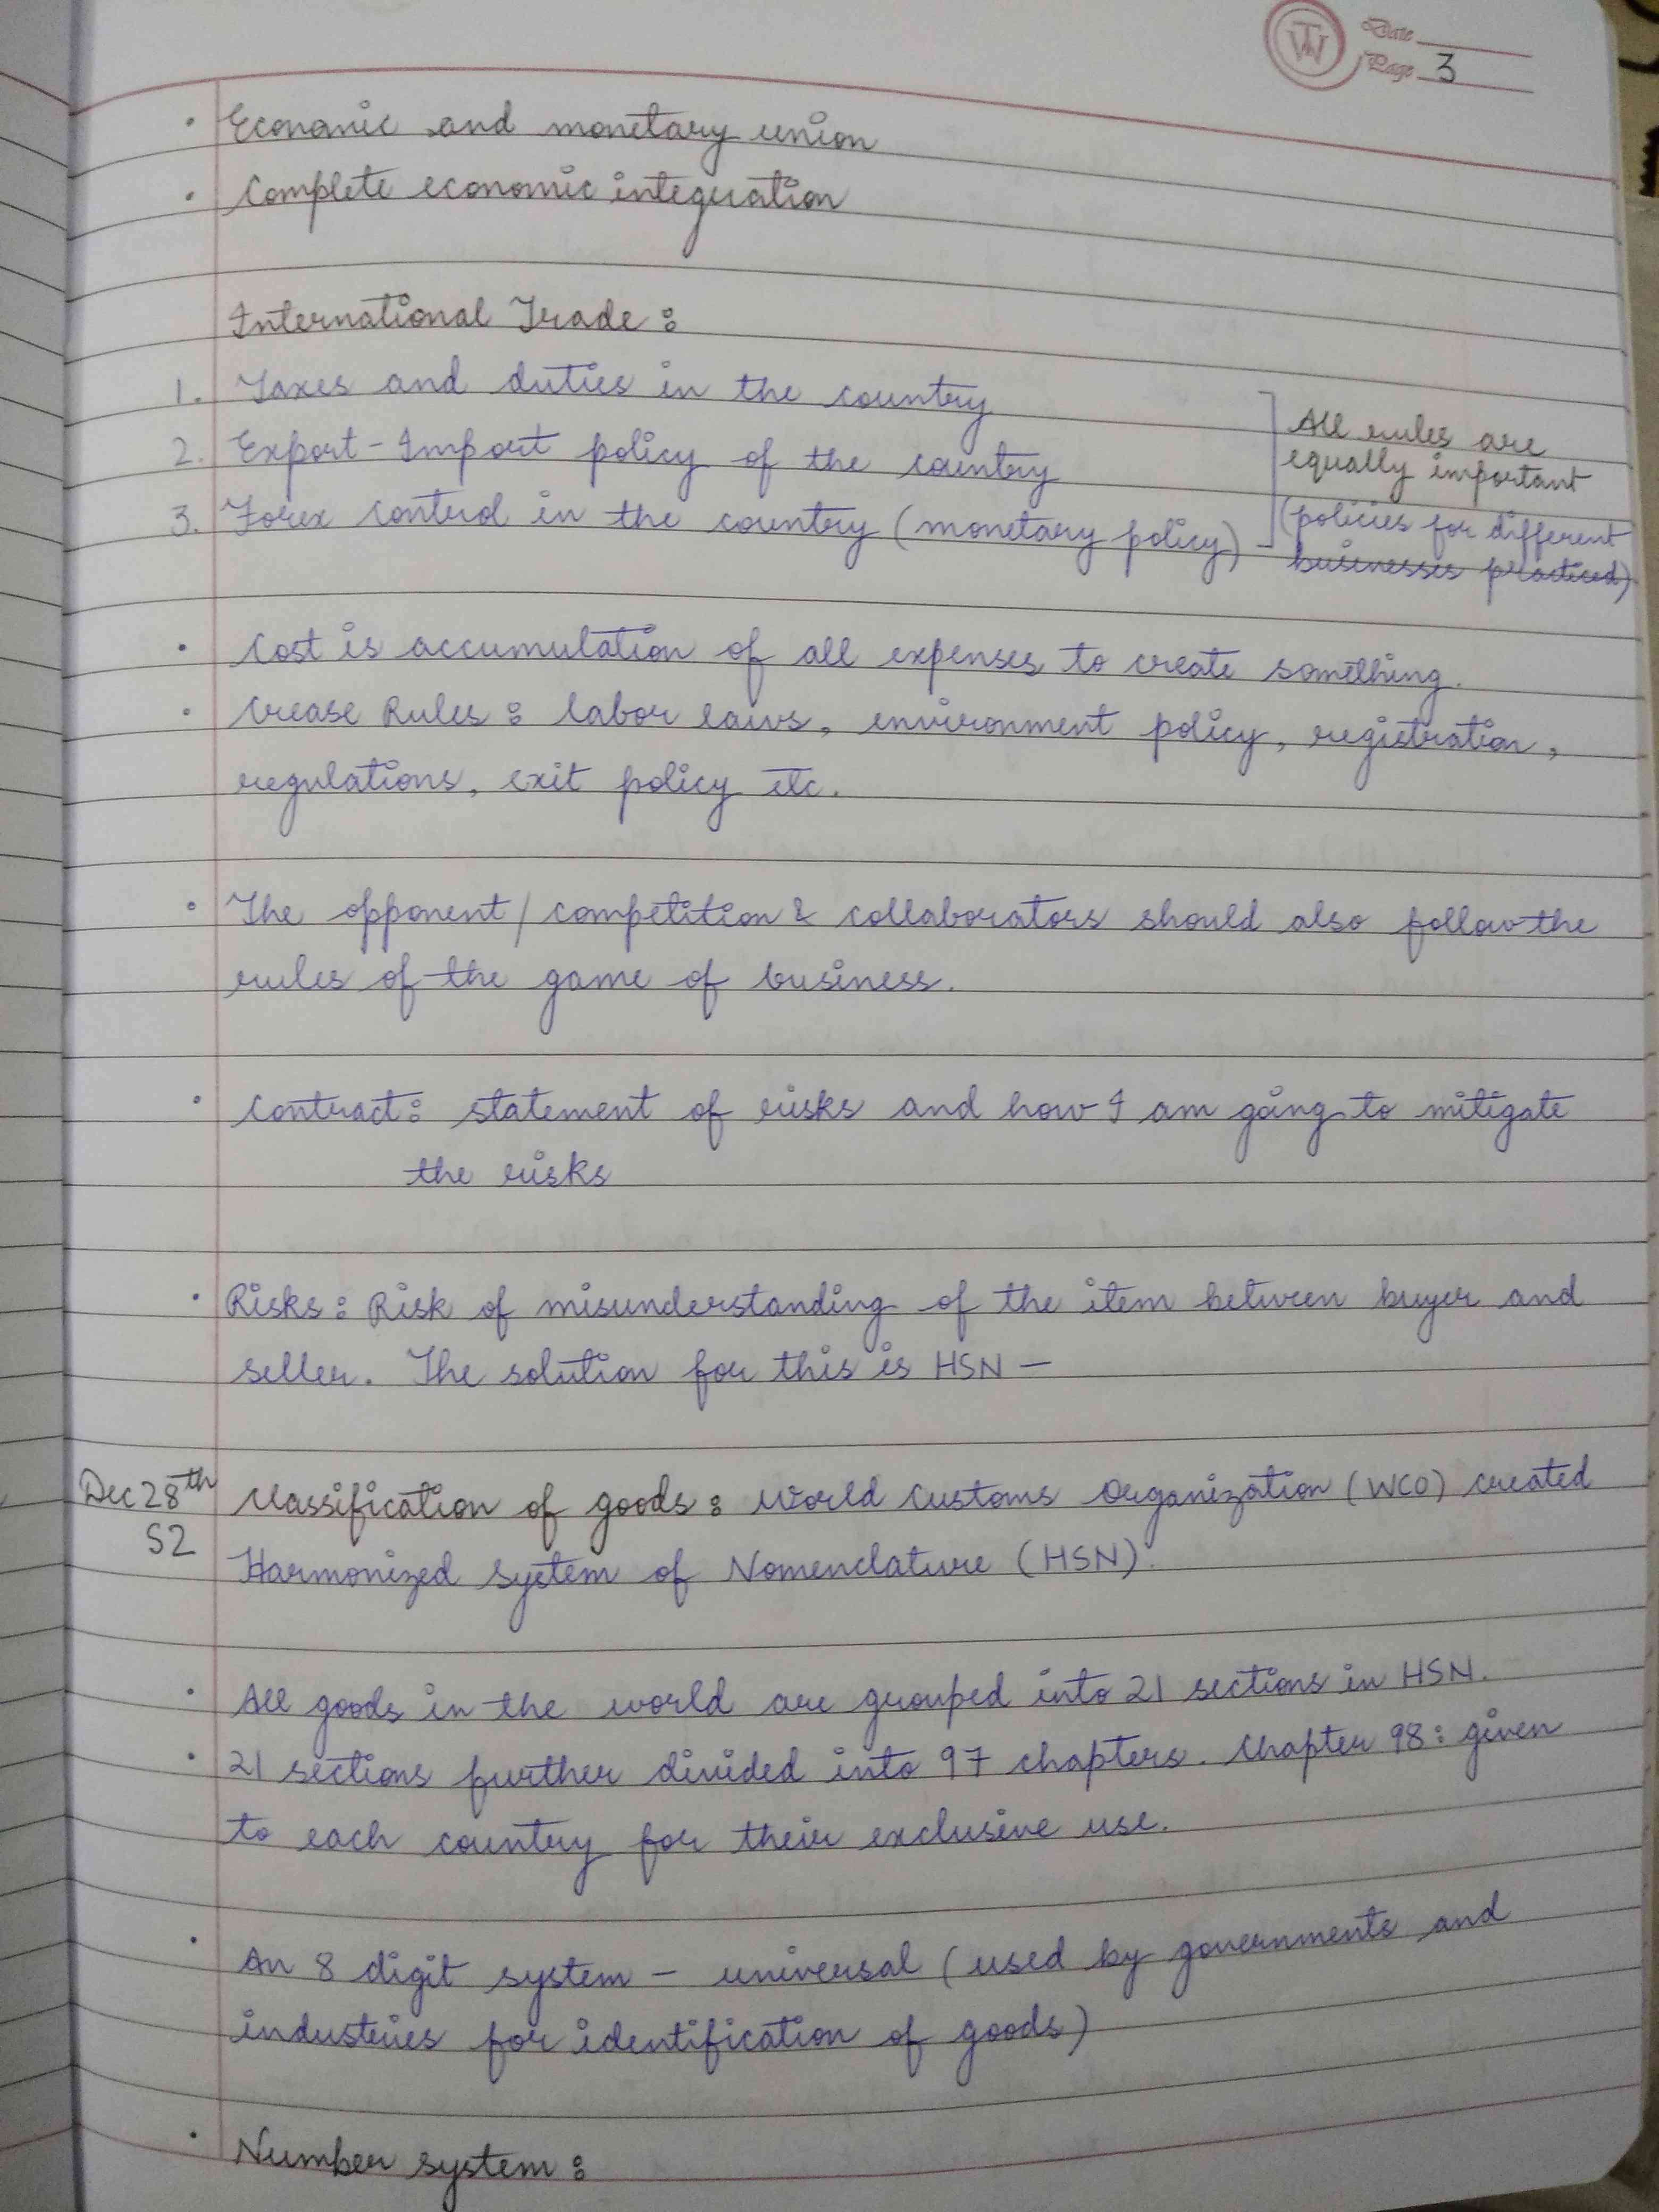 Date
Page 3
• Economic and monetary union
• Complete economic integration
International Trade :
1. Taxes and duties in the country
2. Export-Import policy of the country
3. Forex control in the country (monetary policy)
All rules are
equally important
(policies for different
businesses practiced)
• Cost is accumulation of all expenses to create something.
• Crease Rules : labor laws, environment policy, registration,
regulations, exit policy etc.
• The opponent / competition & collaborators should also follow the
rules of the game of business.
• Contract : statement of risks and how I am going to mitigate
the risks
• Risks : Risk of misunderstanding of the item between buyer and
seller. The solution for this is HSN –
Dec 28th
S2
Classification of goods : World Customs Organization (WCO) created
Harmonized System of Nomenclature (HSN).
• All goods in the world are grouped into 21 sections in HSN.
• 21 sections further divided into 97 chapters. Chapter 98 : given
to each country for their exclusive use.
• An 8 digit system – universal (used by governments and
industries for identification of goods)
• Number system :